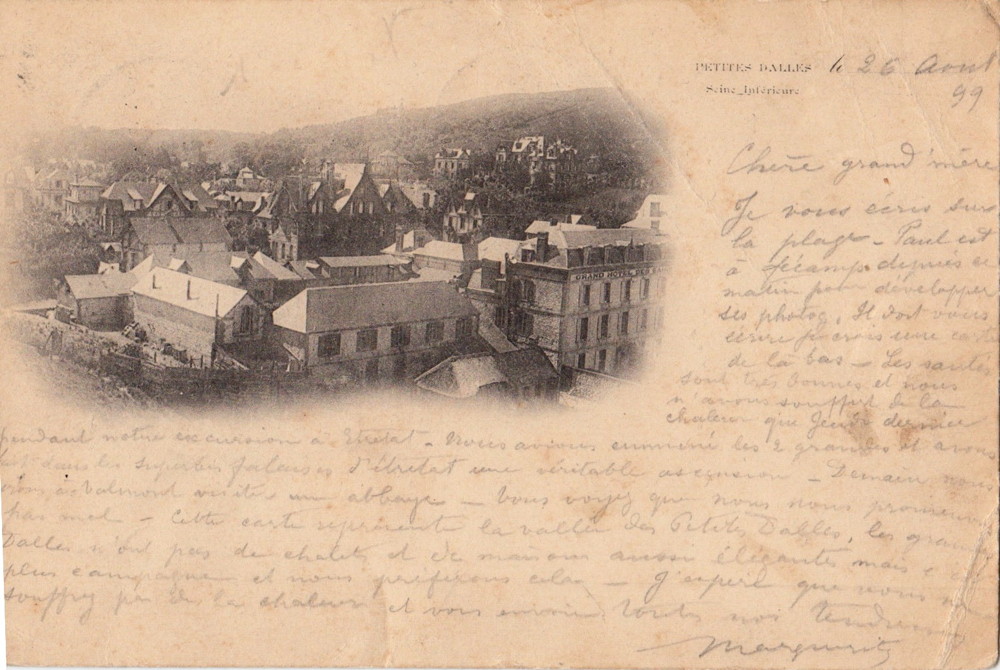 PETITES DALLES le 26 Aout
Seine-Inférieure 99
GRAND HOTEL DES
Chère grand'mère
Je vous écris sur
la plage - Paul est
à Fécamp depuis ce
matin pour développer
ses photog. Il doit vous
écrire je crois une carte
de là bas - Les santés
sont très bonnes et nous
n'avons souffert de la
chaleur que Jeudi dernier
pendant notre excursion à Etretat - Nous avions emmené les 2 grandes et avons
fait dans les superbes falaises d'étretat une véritable ascension - Demain nous
à Valmont visiter une abbaye - Vous voyez que nous nous promenons
pas mal - Cette carte représente la vallée des Petites Dalles, les grandes
Dalles n'ont pas de chalet et de maisons aussi élégantes mais
plus campagne et nous préférons cela - J'espère que vous ne
souffrez pas de la chaleur et vous envoie toutes nos tendresses
Marguerite